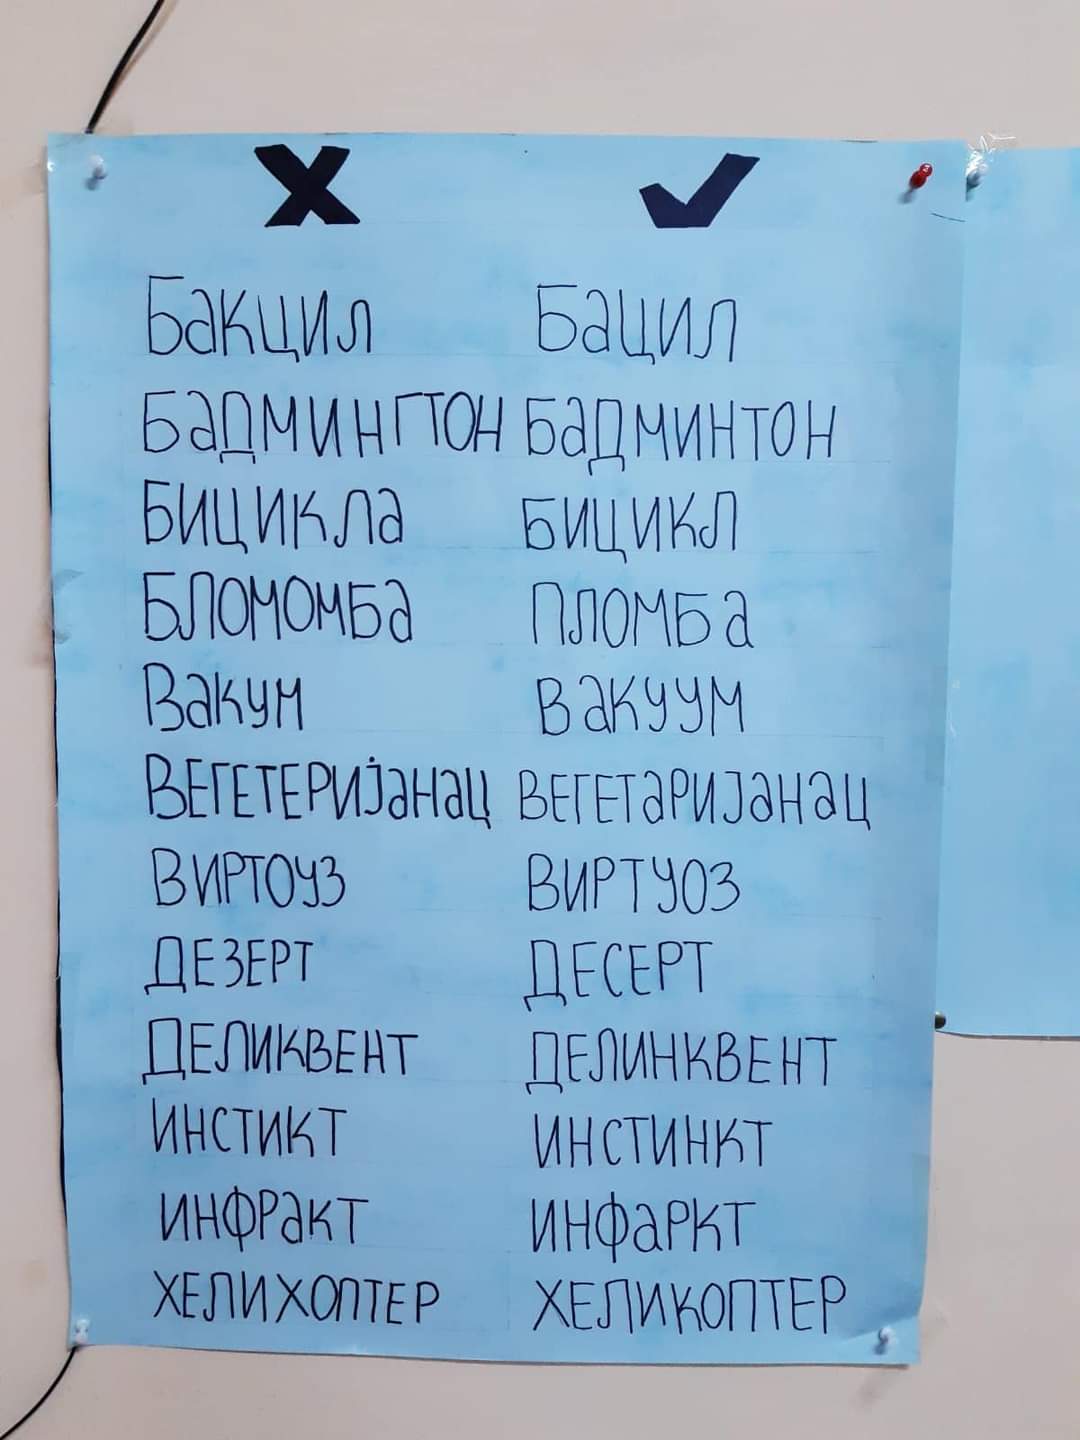 Бакцил Бацил
Бадмингтон Бадминтон
Бицикла Бицикл
Бломомба Пломба
Вакум Вакуум
Вегетеријанац Вегетаријанац
Виртоуз Виртуоз
Дезерт Десерт
Деликвент Делинквент
Инстикт Инстинкт
Инфракт Инфаркт
Хелихоптер Хеликоптер